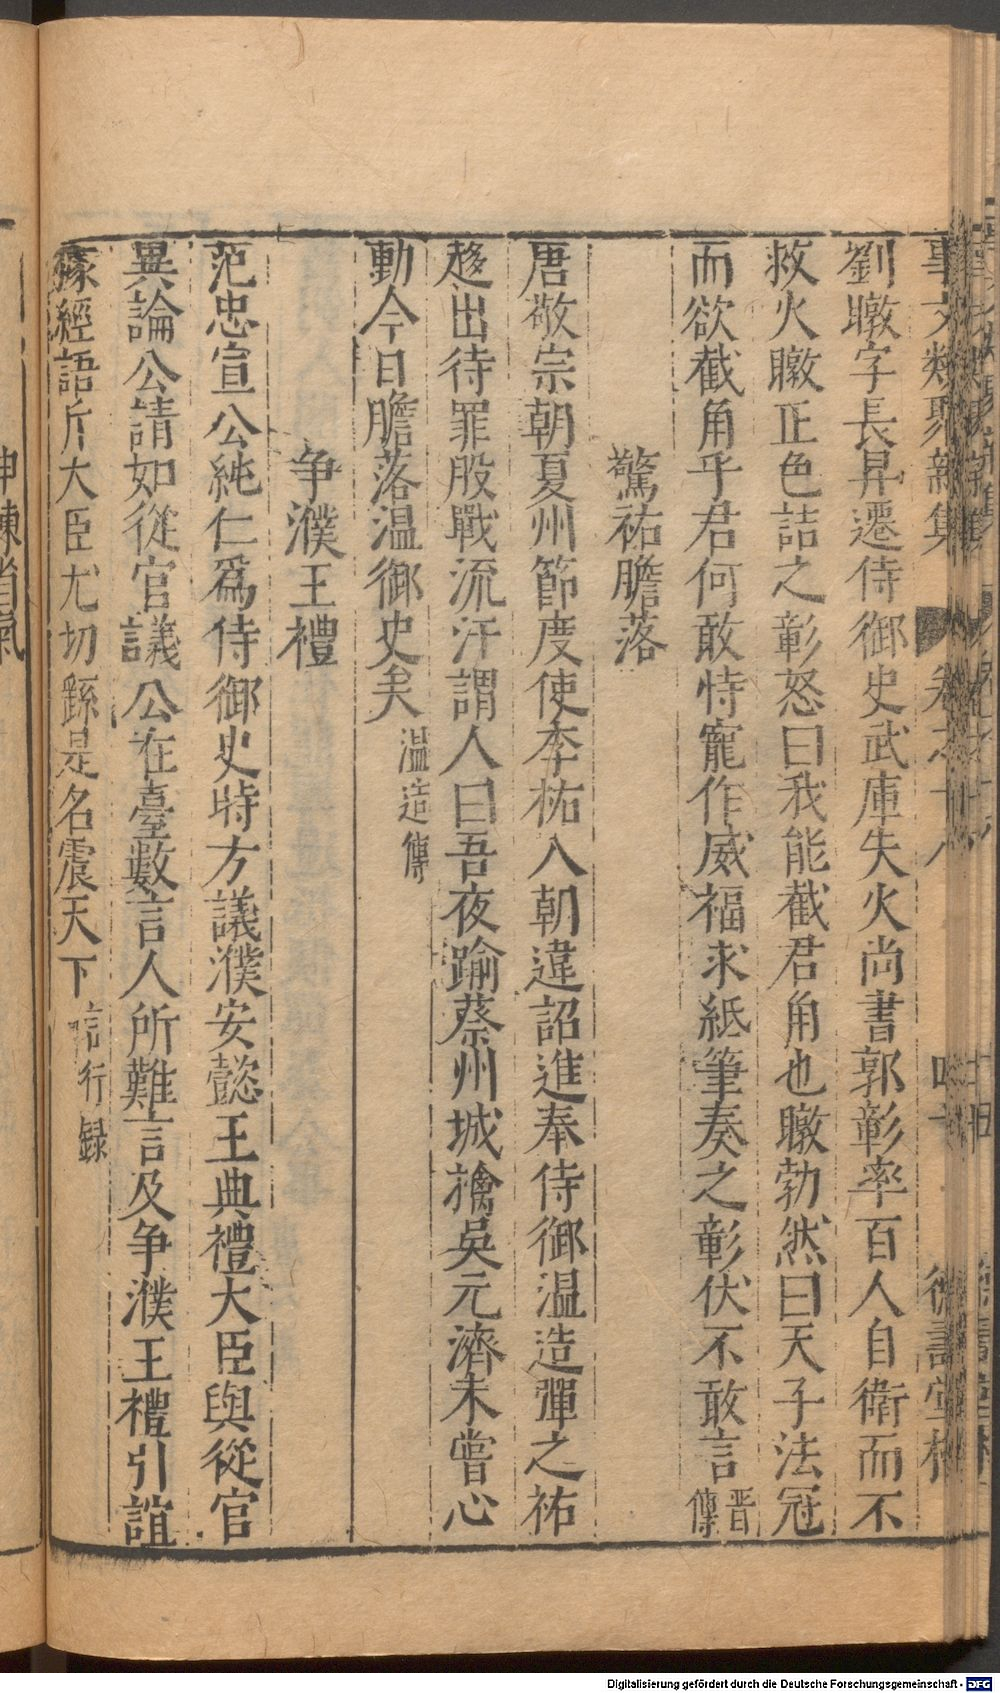 事文類聚新集
劉暾字長昇遷侍御史武庫失火尚書郭彰率百人自衛而不
救火暾正色詰之彰怒曰我能截君角也暾勃然曰天子法冠
而欲截角乎君何敢恃寵作威福求紙筆奏之彰伏不敢言晋傳
驚祐膽落
唐敬宗朝夏州節度使李祐入朝違詔進奉侍御温造彈之祐
趍出待罪股戰流汗謂人曰吾夜踰蔡州城擒吳元濟未嘗心
動今日膽落温御史矣温造傳
争濮王禮
范忠宣公純仁爲侍御史時方議濮安懿王典禮大臣與從官
異論公請如從官議公在臺數言人所難言及争濮王禮引誼
據經語斥大臣尤切繇是名震天下言行録
Digitalisierung gefördert durch die Deutsche Forschungsgemeinschaft - DFG